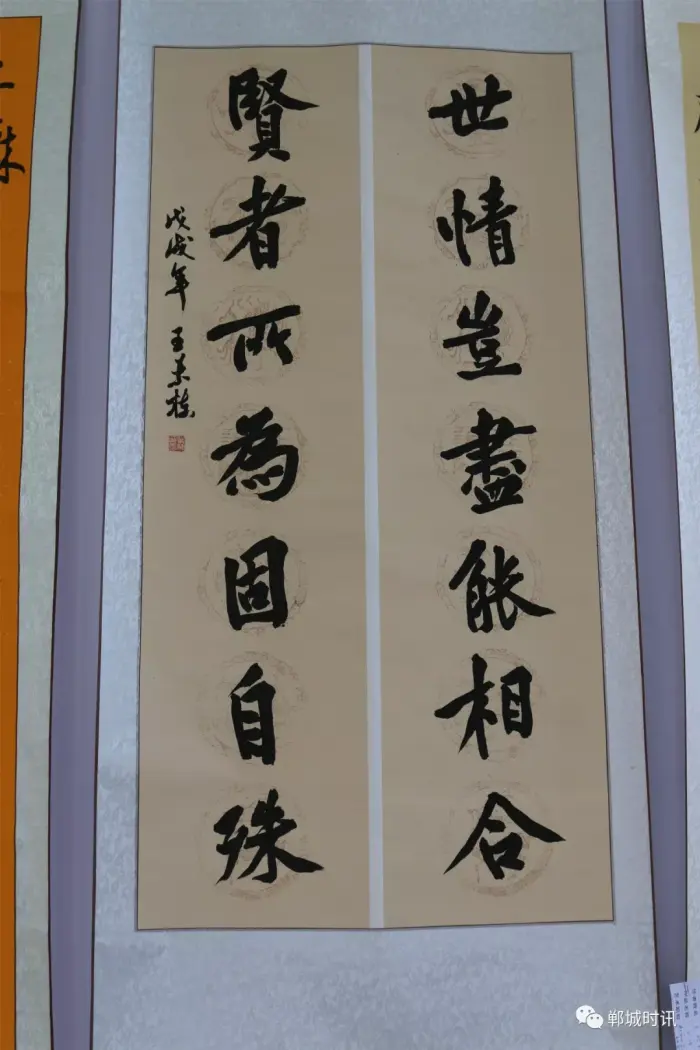 世情豈盡能相合
賢者所為固自殊
戊戌年 王
郸城时讯